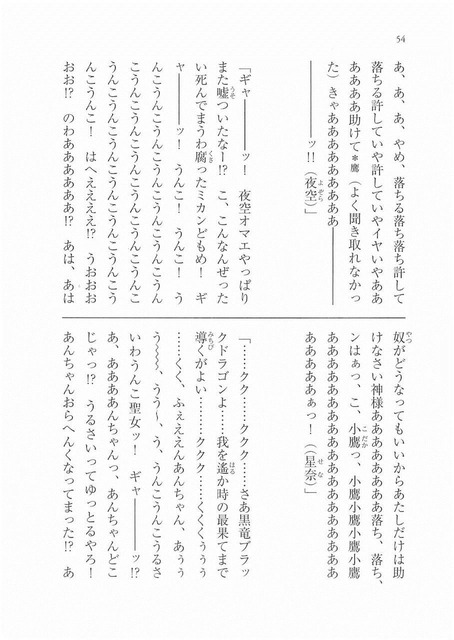 54
あ、あ、あ、やめ、落ちる落ち落ち許して
落ちる許していや許していやイヤいやああ
ああああ助けて＊鷹（よく聞き取れなかっ
た）きゃああああああああああ――――
――――ッ!!（夜空）」
「ギャ――――ッ！　夜空オマエやっぱり
また嘘ついたな――!?　こ、こんなんぜった
い死んでまうわ腐ったミカンどもめ！　ギ
ャ――――ッ！　うんこ！　うんこ！　う
んこうんこうんこうんこうんこうんこうん
こうんこうんこうんこうんこうんこうんこ
うんこうんこうんこうんこうんこうんこう
んこうんこ！　はへえええ!?　うおおお
おお!?　のわああああああ!?　あは、あは
奴がどうなってもいいからあたしだけは助
けなさい神様ああああああああ落ち、落ち、
ンはぁっ、こ、小鷹っ、小鷹小鷹小鷹小鷹
あああああああああああああああああああ
ああああああぁっ！（星奈）」
「……クク……ククク……さあ黒竜ブラッ
クドラゴンよ……我を遙か時の最果てまで
導くがよい………ククク……くくくぅぅぅ
……くく、ふぇええんあんちゃん、あぅぅ
う～～、うう～、う、うんこうんこうるさ
いわうんこ聖女ッ！　ギャ――――ッ!?
あ、ああああんちゃんっ、あんちゃんどこ
じゃっ!?　うるさいってゆっとるやろ！
あんちゃんおらへんくなってまった!?　あ